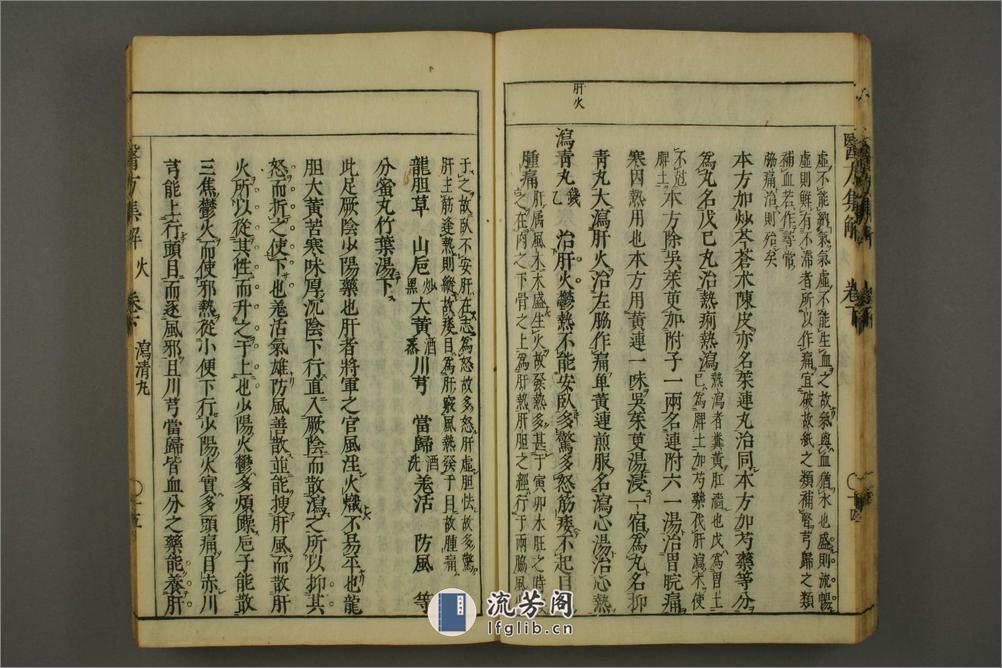 醫方集解 卷下
虛不能納氣氣虛不能生血之故氣與血猶水也盛則流暢
虛則鮮有不滯者所以作痛宜破故紙之類補腎芎歸之類
補血若作尋常
脇痛治則殆矣
本方加炒芩蒼朮陳皮亦名茱連丸治同本方加芍藥等分
爲丸名戊巳丸治熱痢熱瀉
熱瀉者糞黃肛濇也戊爲胃土
巳爲脾土加芍藥伐肝瀉木使
不尅
脾土
本方除吳茱萸加附子一兩名連附六一湯治胃脘痛
寒因熱用也本方用黃連一味吳茱萸湯浸一宿爲丸名抑
青丸大瀉肝火治左脇作痛單黃連煎服名瀉心湯治心熱
肝火
瀉青丸
錢乙
治肝火鬱熱不能安臥多驚多怒筋痿不起目
腫痛
肝屬風木木盛生火故發熱多甚于寅卯木旺之時
之在肉之下骨之上爲肝熱肝胆之經行于兩脇風
于之故臥不安肝在志爲怒故多怒肝虛胆怯故多驚
肝主筋逢熱則縱故痿目爲肝竅風熱發于目故腫痛
龍胆草 山梔炒黑 大黃酒蒸 川芎 當歸酒洗 羗活 防風 等
分蜜丸竹葉湯下
此足厥陰少陽藥也肝者將軍之官風淫火熾不易平也龍
胆大黃苦寒味厚沉陰下行直入厥陰而散瀉之所以抑其
怒而折之使下也羗活氣雄防風善散並能搜肝風而散肝
火所以從其性而升之于上也少陽火鬱多煩躁梔子能散
三焦鬱火而使邪熱從小便下行少陽火實多頭痛目赤川
芎能上行頭目而逐風邪且川芎當歸皆血分之藥能養肝
醫方集解 火 卷下 瀉清丸
流芳阁
lfglib.cn